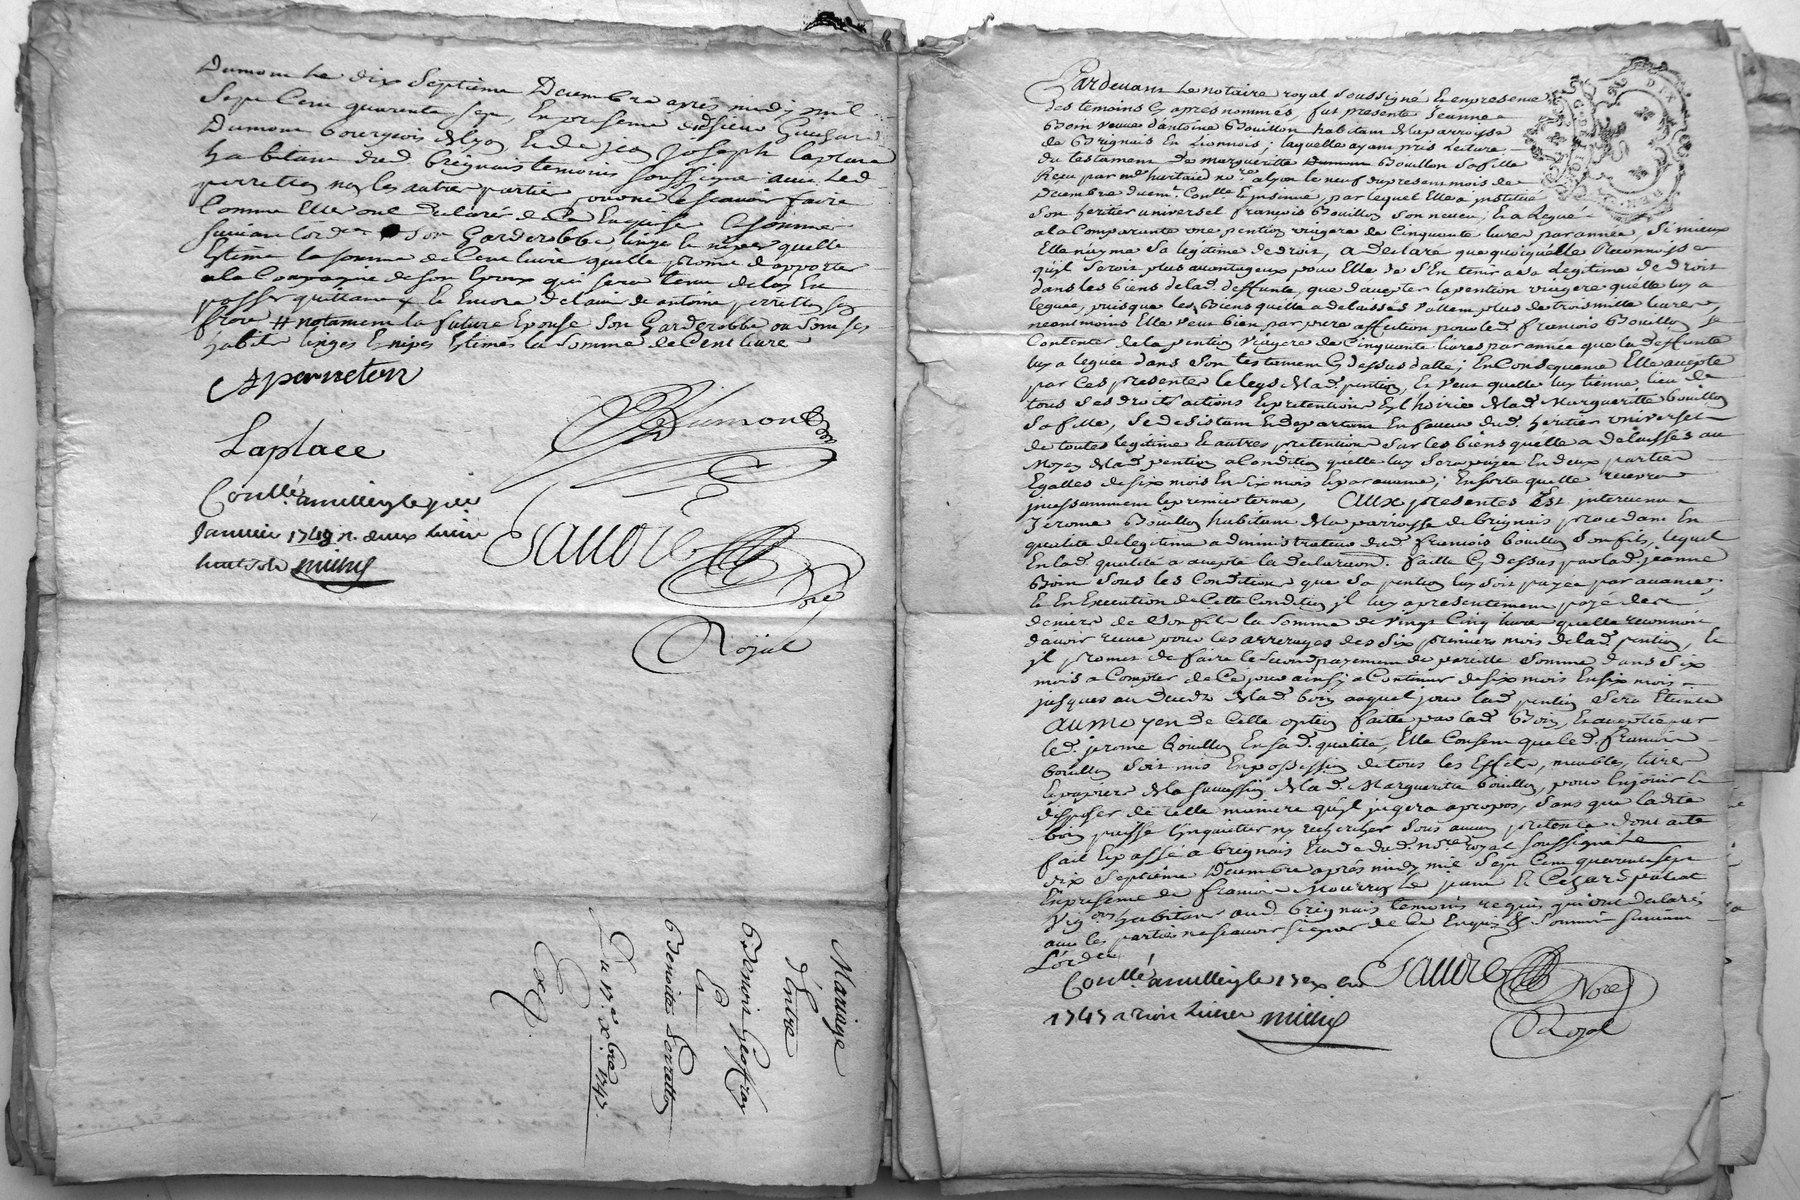 Dumont Le dix Septieme Decembre apres midy mil
Sept Cent quarente Sept, En presence de Sieur Guichard
Dumont bourgeois de Lyon, Et de Jean Joseph Laplace
habitant dud. brignais temoins soussignés avec led.
perretton non les autres parties pour ne le scavoir faire
Comme Elles ont declaré de Ce Enquises Et Sommées
suivant l'ord.ce Son Garderobbe linge Et nipes quelle
Estime la somme de Cent livre quelle promet d'apporter
a la Compagnie de son Epoux qui sera tenu de luy En
passer quittance Et Encore de l'avis de antoine perretton Son
frere # notament la future Epouse Son Garderobbe ou Sont ses
habits linges Enipes Estimés la somme de Cent livre
Aperreton
Dumont
Laplace
Conllé a millery le
Janvier 1748 R. deux livres
huit sols
Sauore
Nore
Royal
Mariage
d'Entre
Benoit Geoffray
Et
Benoite Perretton
Du 17.e Xbre 1747.
Exp.
Pardevant Le notaire royal Soussigné Et en presence
des temoins Cy apres nommés, fut presente Jeanne
Boin veuve d'antoine Bouillon habitant de la parroisse
de Brignais En Lionnois; laquelle ayant pris Lecture
du testament de marguerite Bouillon Sa fille
Reçu par me hurtaud nore. a Lyon le neuf du present mois de
Decembre duemt. Conllé. Et insinué, par lequel Elle a institué
Son heritier universel françois Bouillon Son neveu; Et a Legué
a la Comparante une pention viagere de Cinquante livres par année, Si mieux
Elle n'ayme Sa legitime de droit, a declaré que quoiquelle Reconnoisse
quil seroit plus avantageux pour Elle de S'En tenir a Sa legitime de droit
dans les biens de lad. deffunte, que d'accepter la pention viagere quelle luy a
leguée, puisque les Biens quelle a delaissés vallent plus de trois mille livres,
neantmoins Elle veut bien par pure affection pour led. francois Bouillon se
Contenter de la pention viagere de Cinquante livres par année que la deffunte
luy a leguée dans Son testament Cy dessus datté; En Consequence Elle accepte
par Ces presentes le legs de lad. pention, Et veut quelle luy tienne lieu de
tous ses droits actions Et pretentions Et hoirie de lad. Marguerite bouillon
Sa fille, Se desistant Et departant En faveur dud. heritier universel
de toutes legitime Et autres pretention Sur les biens quelle a delaissés au
Moyen de lad. pention a Condition quelle luy Sera payée En deux parties
Egalles de six mois En Six mois Et par avance; Ensorte quelle recevra
incessamment le premier terme, Aux presentes Est intervenu
Jerome Bouillon habitant de la parroisse de brignais procedant En
qualité de legitime administrateur dud. francois bouillon Son fils, lequel
En lad. qualité a accepté la declaration faitte Cy dessus par lad. jeanne
Boin Sous les Conditions que Sa pention luy soit payée par avance;
Et En Execution de Cette Condition il luy a presentement payé des
deniers de Son fils la Somme de vingt Cinq livres quelle reconnoit
d'avoir recue pour les arrerages des Six premiers mois de lad. pention, Et
il promet de faire le second payement de pareille Somme dans Six
mois a Compter de Ce jour ainsy a Continuer de six mois En six mois
jusques au deceds de lad. boin auquel jour lad. pention Sera Eteinte
Au moyen de Cette option faitte par lad. Boin, Et acceptée par
led. jerome Bouillon En sa d. qualité, Elle Consent que led. francois
bouillon Soit mis En possession de tous les Effets, meubles, titres
Et papiers de la succession de lad. Marguerite bouillon, pour En jouir Et
disposer de telle maniere quil jugera a propos, Sans que ladite
boin puisse l'inquieter ny rechercher Sous aucun pretexte dont acte
fait Et passé a brignais Etude dud. nore royal soussigné Le
dix Septieme Decembre apres midy mil Sept Cent quarente Sept
En presence de francois Mourron le jeune Et Cesar
vig.ons habitans aud. brignais temoins requis qui ont declarés
avec les parties ne scavoir signer de Ce Enquis & Sommés suivant
L'ord.ce
Conllé a millery le 17 Xbre
1747 a Rion livres
Sauore
Nore
Royal